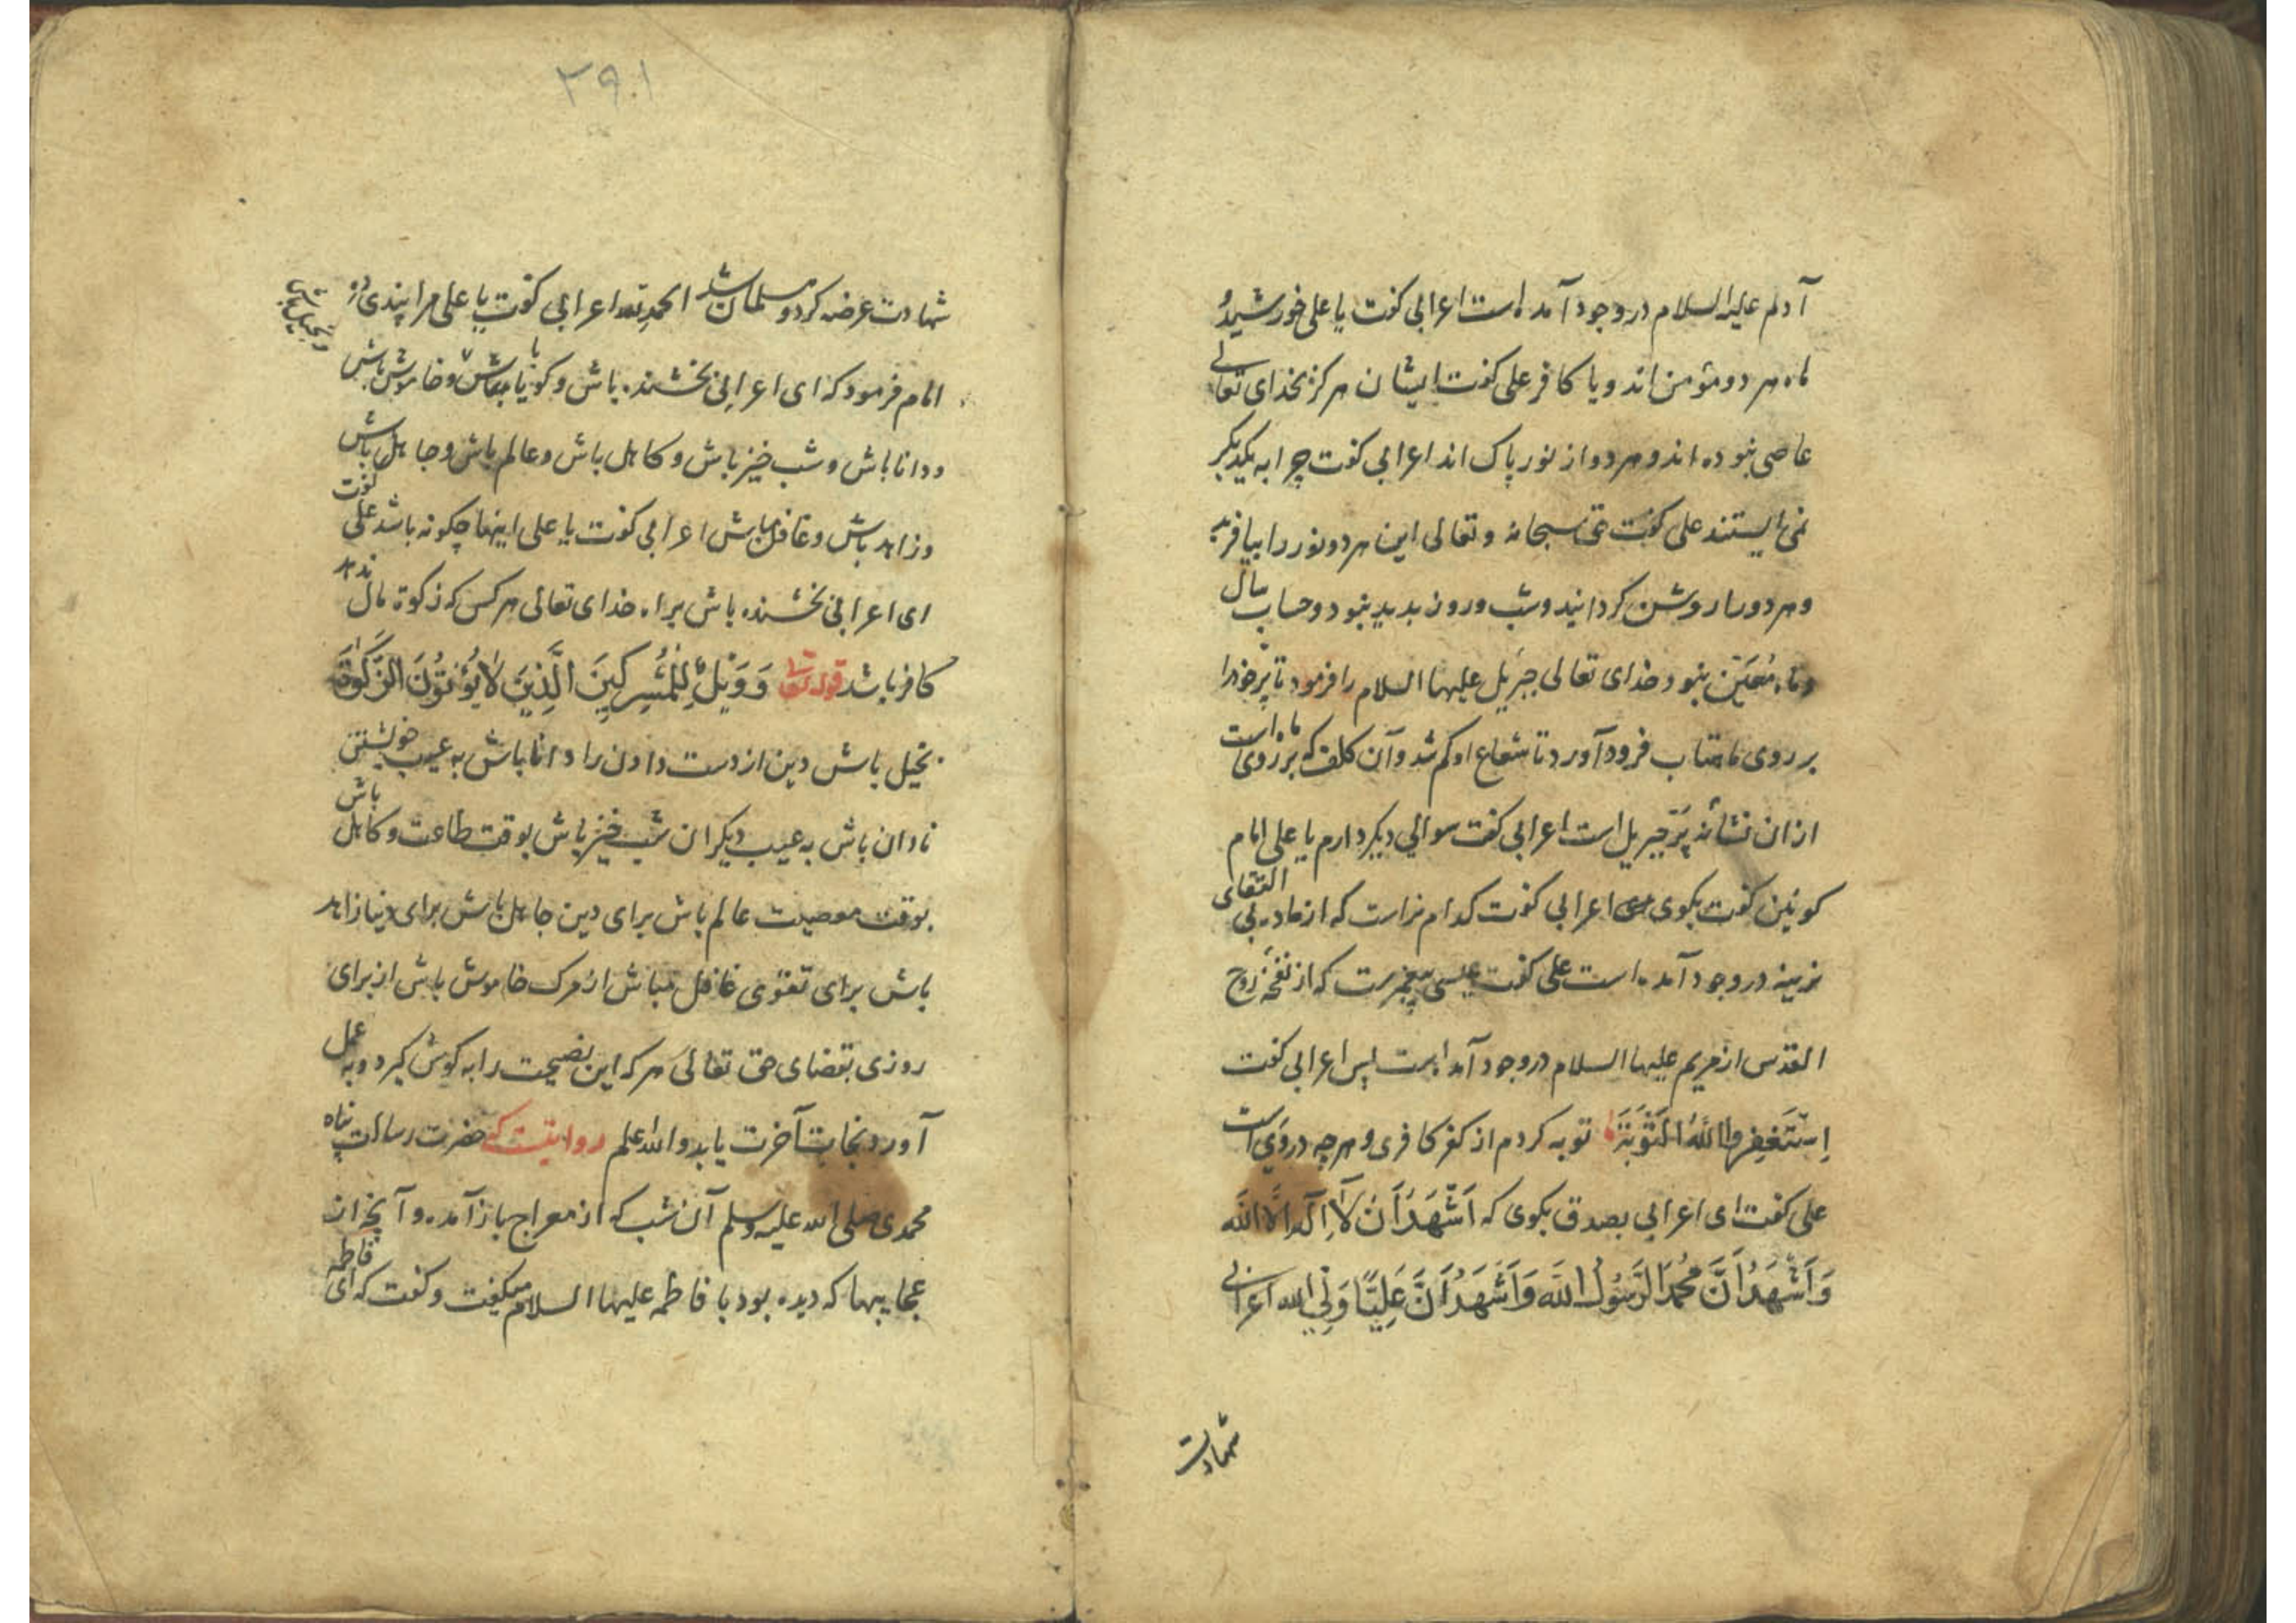 آدم علیه السلام در وجود آمده است اعرابی کفت یا علی خورشید و
ماه هر دو مؤمن اند و یا کافر علی کفت ایشان هرکز بخدای تعالی
عاصی نبوده اند و هر دو از نور پاک اند اعرابی کفت چرا به یکدیکر
نمی ایستند علی کفت حق سبحانه و تعالی این هر دو نور را بیافرید
و هر دو را روشن کردانید و شب و روز پدید نبود و حساب سال
و ماه معین نبود خدای تعالی جبریل علیها السلام را فرمود تا پر خود را
بر روی ماهتاب فرود آورد تا شعاع او کم شد و آن کلف که بر روی ماه است
از ان نشانه پر جبریل است اعرابی کفت سوالی دیکر دارم یا علی امام
کونین کفت بکوی اعرابی کفت کدام نر است که از ماده بی التقای
نرینه در وجود آمده است علی کفت عیسی پیغمبرست که از نفخه روح
القدس از مریم علیها السلام در وجود آمد است پس اعرابی کفت
اِسْتَغْفِرواللّٰهُ التَّوْبَتَهَا توبه کردم از کفر کافری و هرچه در وی است
علی کفت ای اعرابی بصدق بکوی که اَشْهَدُ اَنْ لَا اِلَهَ اِلَّا اللّٰه
وَاَشْهَدُ اَنَّ مُحَمَّدَ الرَّسُولُ اللّٰه وَاَشْهَدُ اَنَّ عَلِیًّا وَلِیُّ الله اعرابی
شهادت
۲۹۰۱
شهادت عرضه کرد و مسلمان شد الحمد لله اعرابی کفت یا علی مرا پندی ده
امام فرمود که ای اعرابی بخشنده باش و بخیل باش و کویا باش و خاموش باش
و دانا باش و شب خیز باش و کاهل باش و عالم باش و جاهل باش
و زاهد باش و غافل باش اعرابی کفت یا علی اینها چکونه باشد علی کفت
ای اعرابی بخشنده باش براه خدای تعالی هر کس که زکوة مال ندهد
کافر باشد قوله تعالی وَوَیْلٌ لِلْمُشْرِکِینَ الَّذِینَ لَا یُؤْتُونَ الزَّکٰوةَ
بخیل باش دین از دست دادن را دانا باش به عیب خویشتن
نادان باش به عیب دیکران شب خیز باش بوقت طاعت و کاهل باش
بوقت معصیت عالم باش برای دین جاهل باش برای دنیا زاهد
باش برای تقوی غافل مباش از مرک خاموش باش از برای
روزی بقضای حق تعالی هر که این نصیحت را به کوش کیرد و به عمل
آورد نجات آخرت یابد والله اعلم روایتست که حضرت رسالت پناه
محمدی صلی الله علیه وسلم آن شب که از معراج باز آمده و آنچه از
عجایبها که دیده بود با فاطمه علیها السلام میکفت و کفت که ای فاطمه